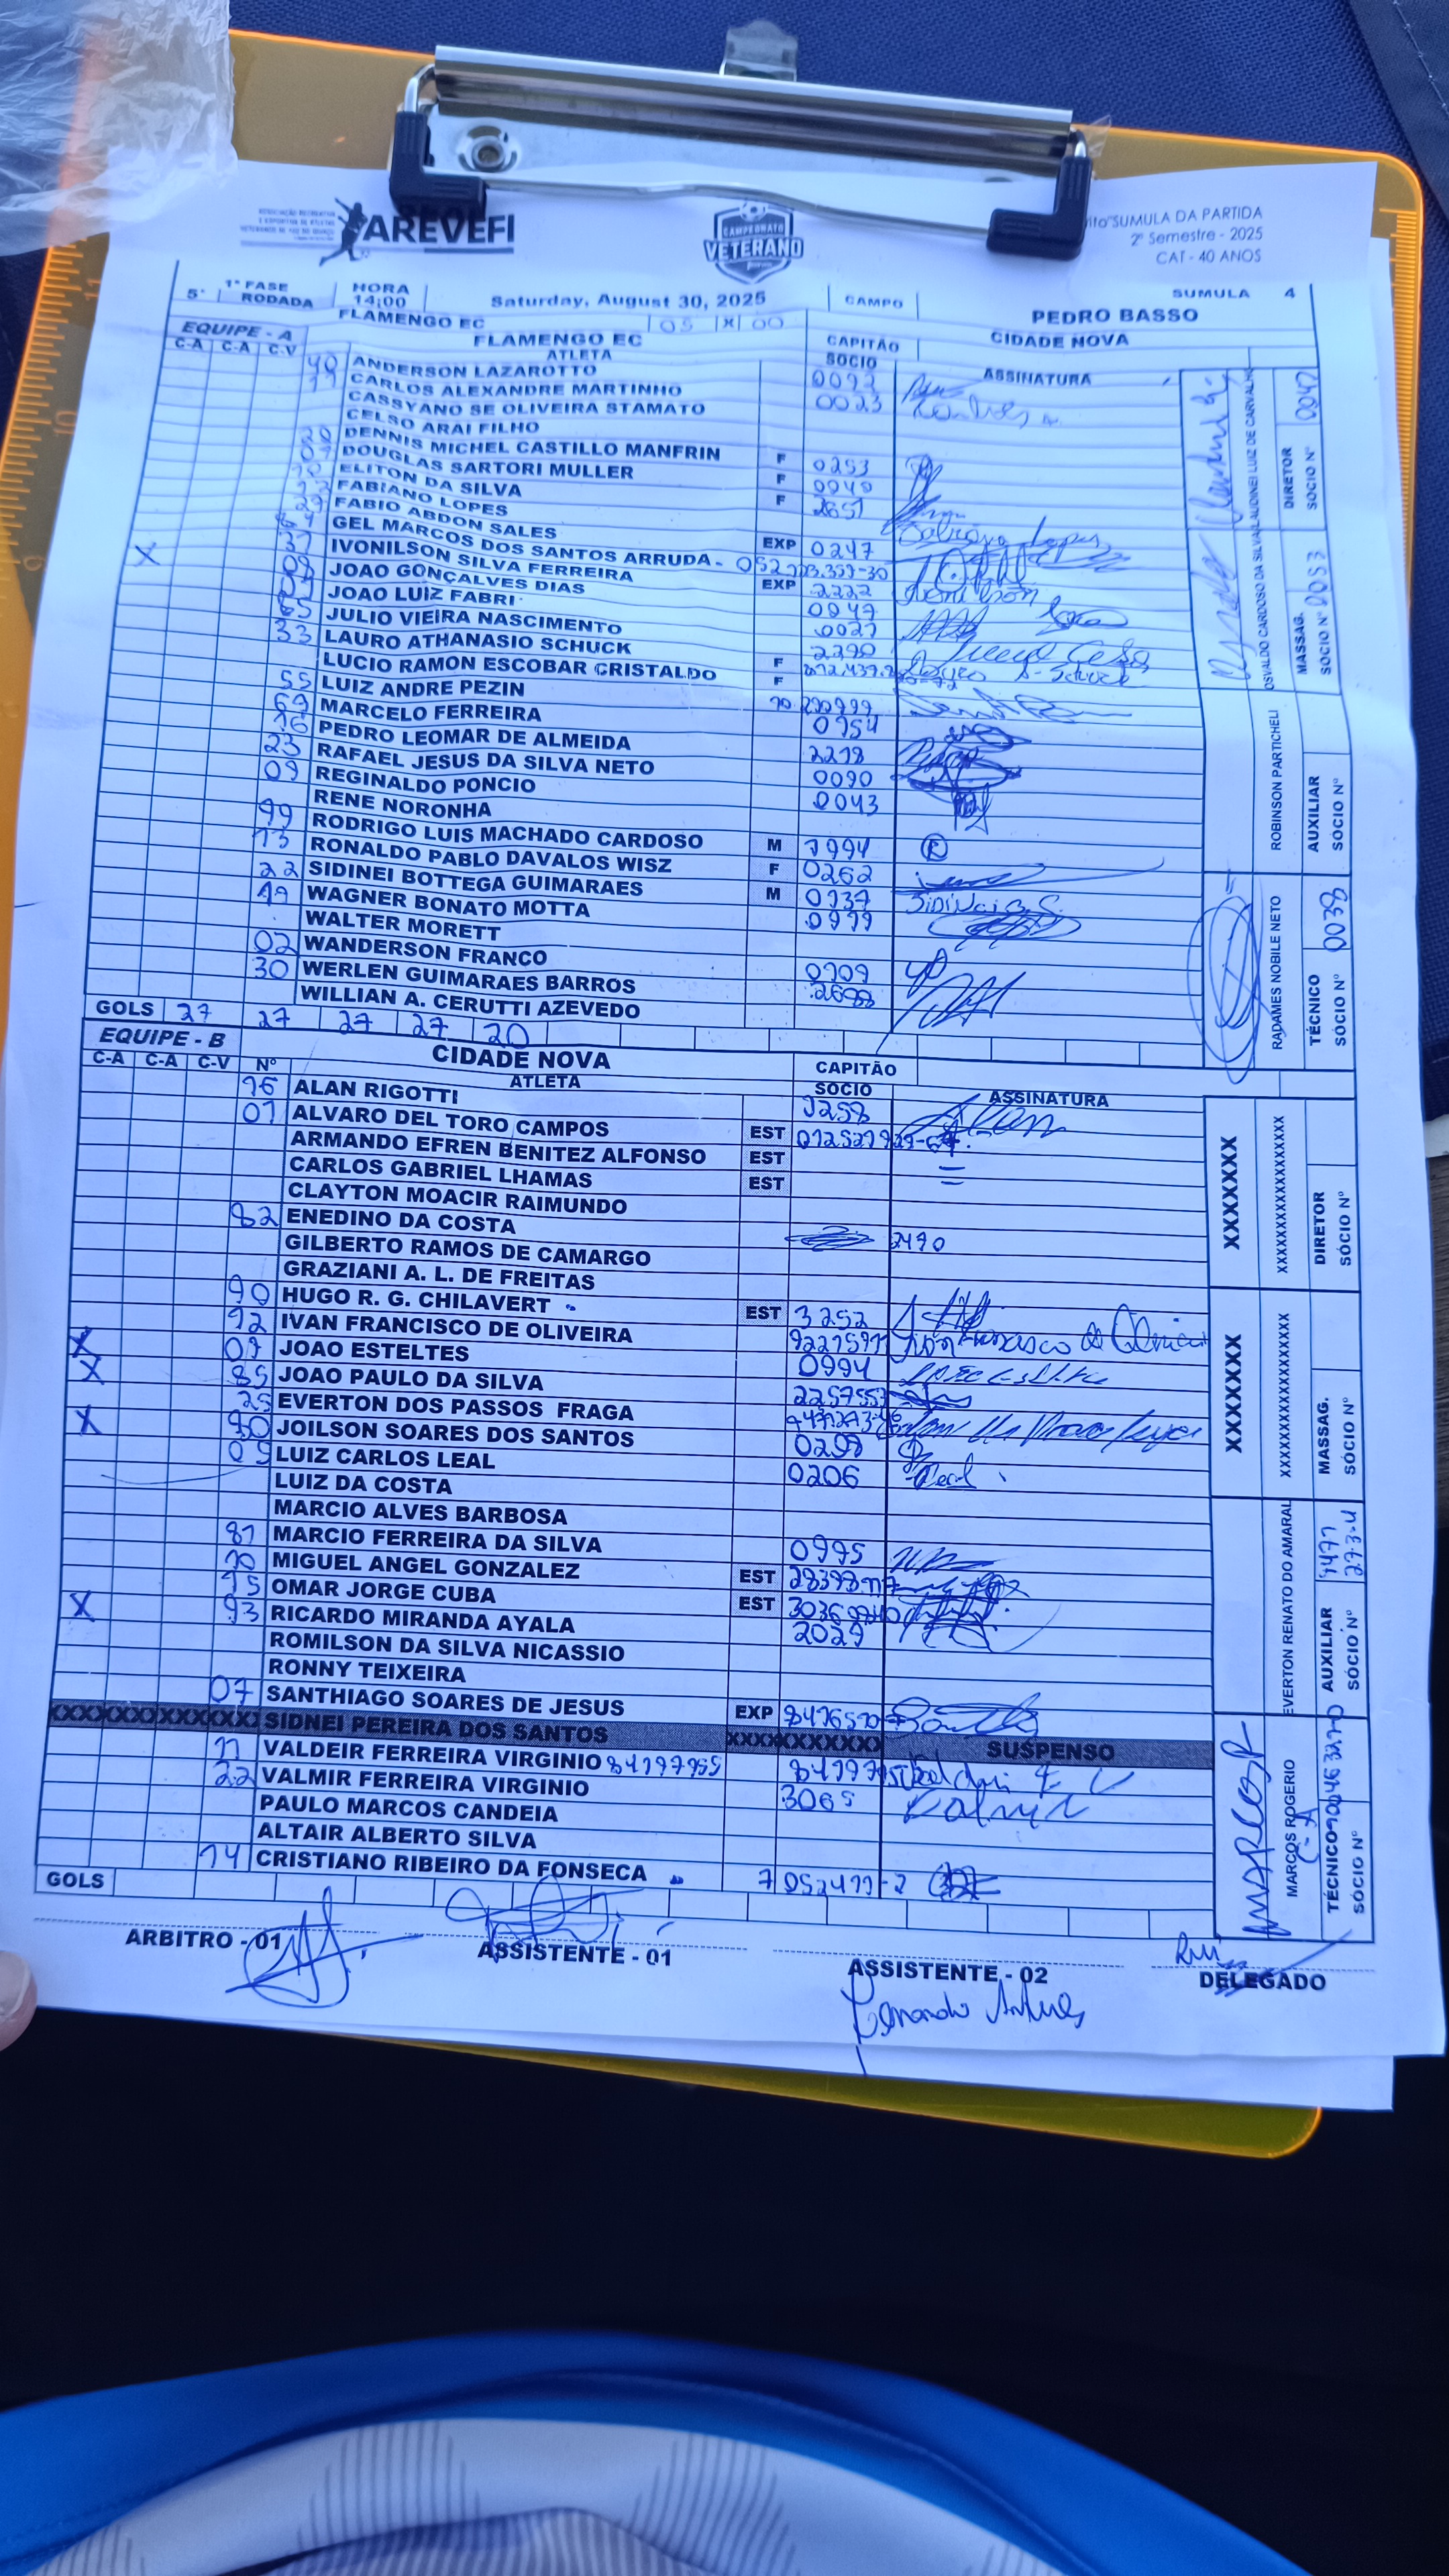 AREVEFI
CAMPEONATO
VETERANO
SUMULA DA PARTIDA
2º Semestre - 2025
CAT - 40 ANOS
5ª 1ª FASE RODADA HORA 14:00 Saturday, August 30, 2025 CAMPO SUMULA 4
PEDRO BASSO
FLAMENGO EC 05 X 00 CIDADE NOVA
EQUIPE - A FLAMENGO EC CAPITÃO
C-A C-A C-V ATLETA SOCIO ASSINATURA
40 ANDERSON LAZAROTTO 0092
11 CARLOS ALEXANDRE MARTINHO 0023
CASSYANO SE OLIVEIRA STAMATO
CELSO ARAI FILHO
20 DENNIS MICHEL CASTILLO MANFRIN F 0253
DOUGLAS SARTORI MULLER F 0040
ELITON DA SILVA F 2651
FABIANO LOPES
FABIO ABDON SALES EXP 0247
GEL MARCOS DOS SANTOS ARRUDA -
X IVONILSON SILVA FERREIRA EXP 2222
JOAO GONÇALVES DIAS 0047
JOAO LUIZ FABRI 0021
JULIO VIEIRA NASCIMENTO 2290
33 LAURO ATHANASIO SCHUCK F
LUCIO RAMON ESCOBAR CRISTALDO F
55 LUIZ ANDRE PEZIN
69 MARCELO FERREIRA 0154
16 PEDRO LEOMAR DE ALMEIDA 2218
23 RAFAEL JESUS DA SILVA NETO 0090
09 REGINALDO PONCIO 0043
RENE NORONHA
99 RODRIGO LUIS MACHADO CARDOSO M 1994
13 RONALDO PABLO DAVALOS WISZ F 0262
22 SIDINEI BOTTEGA GUIMARAES M 0137 Sidinei B. G.
19 WAGNER BONATO MOTTA 0979
WALTER MORETT
02 WANDERSON FRANCO 0109
30 WERLEN GUIMARAES BARROS 2698
WILLIAN A. CERUTTI AZEVEDO
GOLS 27 27 27 27 20
OSVALDO CARDOSO DA SILVA
AUDINEI LUIZ DE CARVALHO
DIRETOR SOCIO Nº 0047
MASSAG. SOCIO Nº 0053
ROBINSON PARTICHELI
AUXILIAR SOCIO Nº
RADAMES NOBILE NETO
TÉCNICO SOCIO Nº 0038
EQUIPE - B CIDADE NOVA CAPITÃO
C-A C-A C-V Nº ATLETA SOCIO ASSINATURA
16 ALAN RIGOTTI 3258
01 ALVARO DEL TORO CAMPOS EST
ARMANDO EFREN BENITEZ ALFONSO EST
CARLOS GABRIEL LHAMAS EST
CLAYTON MOACIR RAIMUNDO
82 ENEDINO DA COSTA 2470
GILBERTO RAMOS DE CAMARGO
GRAZIANI A. L. DE FREITAS
90 HUGO R. G. CHILAVERT EST 3252
92 IVAN FRANCISCO DE OLIVEIRA Ivan Francisco de Oliveira
X 07 JOAO ESTELTES 0994
X 85 JOAO PAULO DA SILVA 2257557
25 EVERTON DOS PASSOS FRAGA
X 50 JOILSON SOARES DOS SANTOS 0208
05 LUIZ CARLOS LEAL 0206 Leal
LUIZ DA COSTA
MARCIO ALVES BARBOSA
81 MARCIO FERREIRA DA SILVA 0995
10 MIGUEL ANGEL GONZALEZ EST
15 OMAR JORGE CUBA EST
X 93 RICARDO MIRANDA AYALA 2029
ROMILSON DA SILVA NICASSIO
RONNY TEIXEIRA
07 SANTHIAGO SOARES DE JESUS EXP
XXXXXXXXXXXXX SIDNEI PEREIRA DOS SANTOS XXXXXXXXXXXX SUSPENSO
11 VALDEIR FERREIRA VIRGINIO 84197955
22 VALMIR FERREIRA VIRGINIO 3065 Valmir
PAULO MARCOS CANDEIA
ALTAIR ALBERTO SILVA
14 CRISTIANO RIBEIRO DA FONSECA 7 052411-2
GOLS
XXXXXXX
XXXXXXXXXXXXXXXXXXX
DIRETOR SÓCIO Nº
XXXXXXX
XXXXXXXXXXXXXXXXXXX
MASSAG. SÓCIO Nº
EVERTON RENATO DO AMARAL
AUXILIAR SÓCIO Nº
MARCOS R
MARCOS ROGERIO
C-A
TÉCNICO SÓCIO Nº
ARBITRO - 01 ASSISTENTE - 01 ASSISTENTE - 02 DELEGADO
Fernando Antunes
Rui